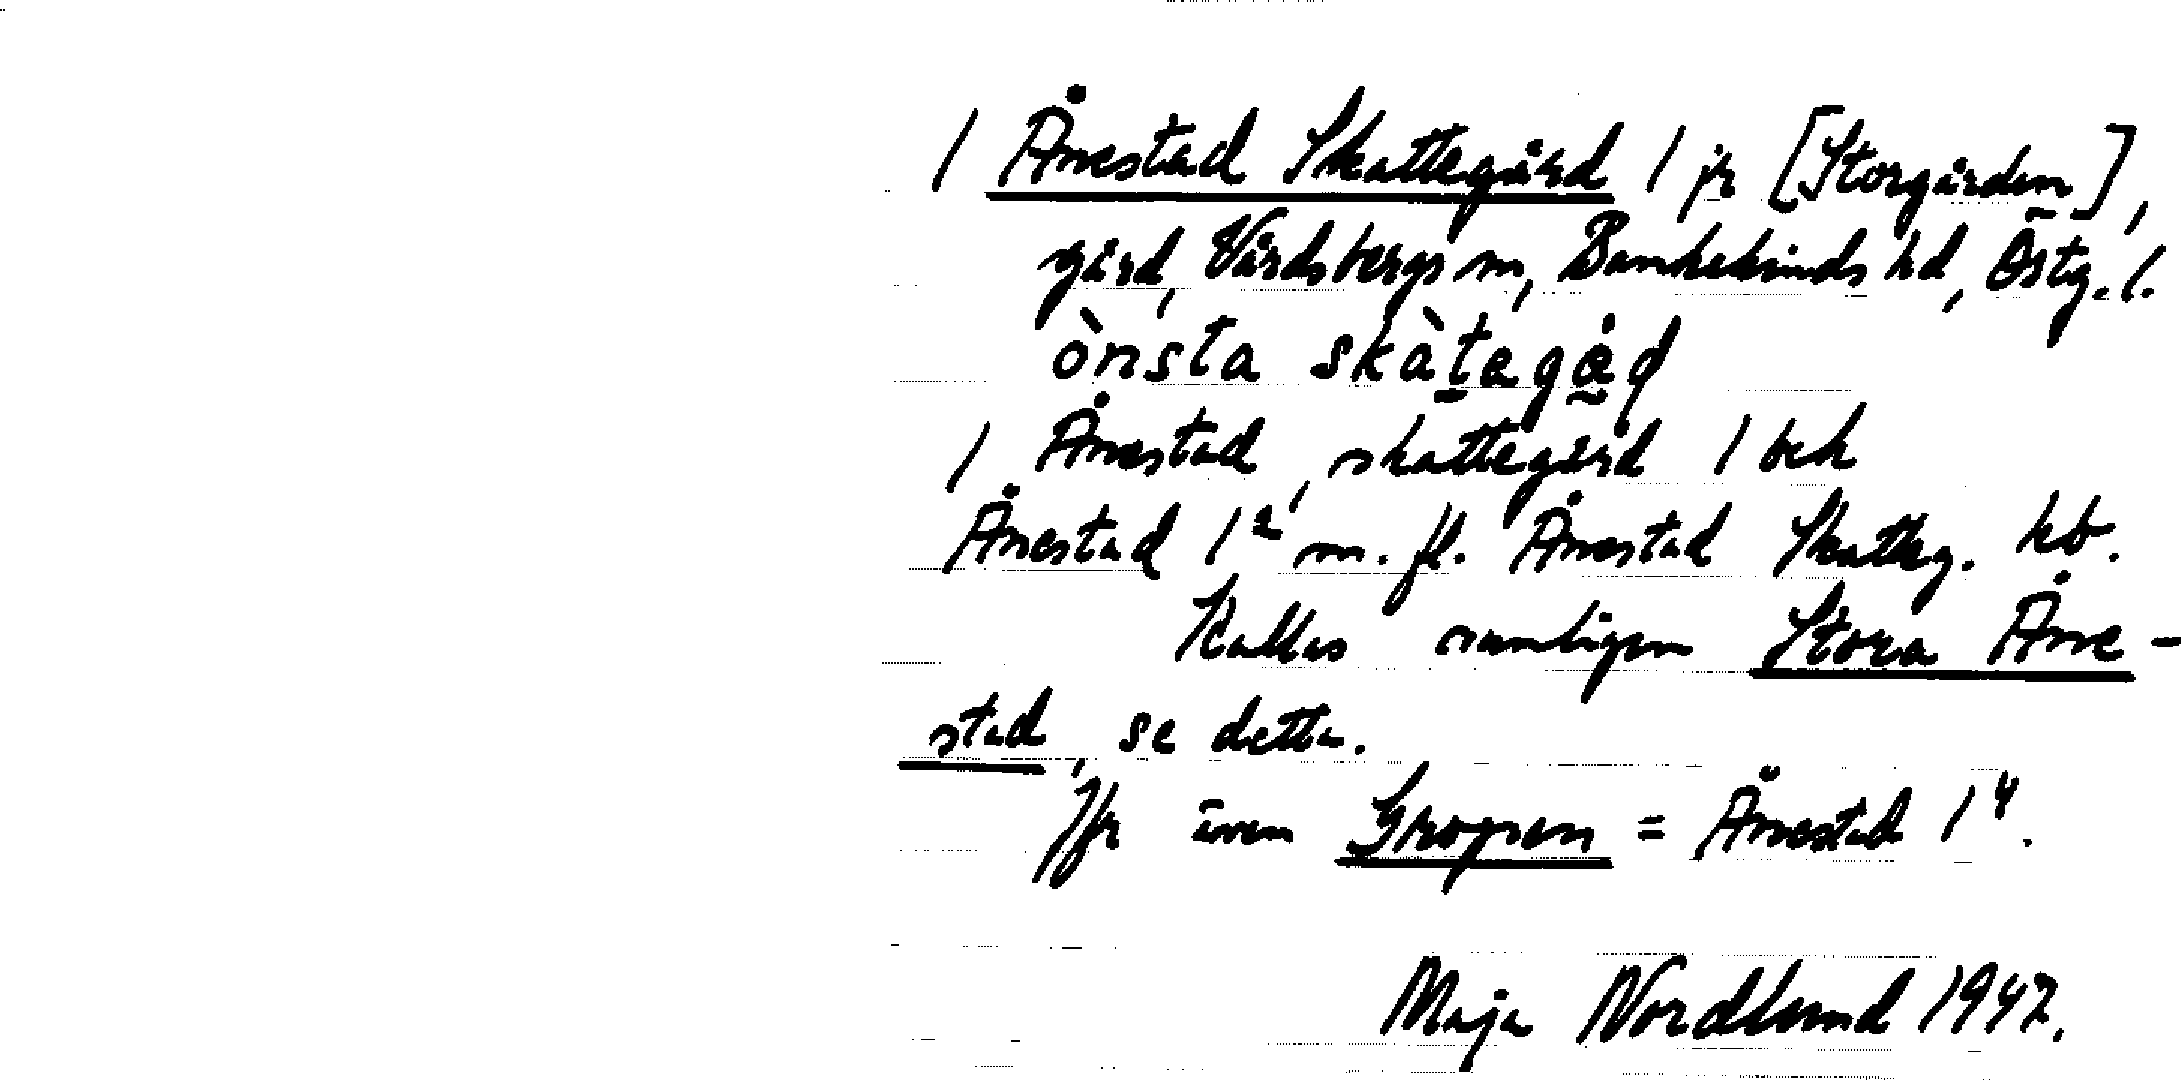 / Ånestad Skattegård / jr [Storgården],
gård, Vårdsbergs sn, Bankekinds hd, Östg. l.
ònsta skàtegåd
/ Ånestad, skattegård / bek
Ånestad 1² m. fl. Ånestad Skatteg. kb.
Kallas vanligen Stora Åne-
stad, se detta.
Jfr även Gropen = Ånestad 1⁴.
Maja Nordlund 1947.